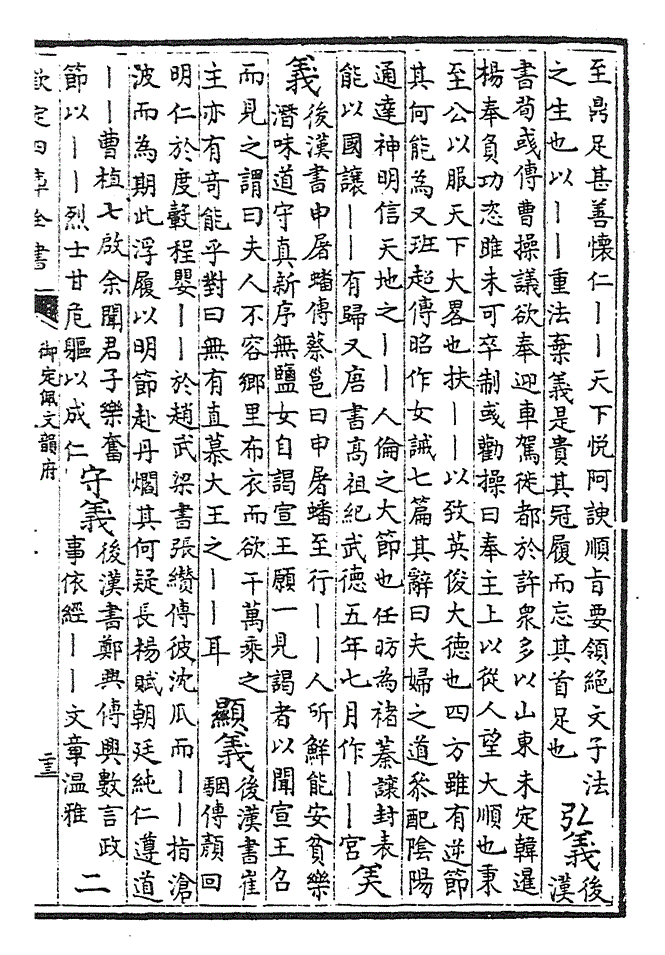 至鼎足甚善懷仁丨丨天下悅阿諛順旨要領絶文子法
之生也以丨丨重法棄義是貴其冠履而忘其首足也
弘義
後
漢
書荀彧傳曹操議欲奉迎車駕徙都於許衆多以山東未定韓暹
楊奉負功恣睢未可卒制彧勸操曰奉主上以從人望大順也秉
至公以服天下大畧也扶丨丨以致英俊大德也四方雖有逆節
其何能為又班超傳昭作女誡七篇其辭曰夫婦之道叅配陰陽
通達神明信天地之丨丨人倫之大節也任昉為褚蓁讓封表
能以國讓丨丨有歸又唐書高祖紀武德五年七月作丨丨宮
美
義
後漢書申屠蟠傳蔡邕曰申屠蟠至行丨丨人所鮮能安貧樂
潛味道守真新序無鹽女自謁宣王願一見謁者以聞宣王召
而見之謂曰夫人不容鄉里布衣而欲干萬乘之
主亦有奇能乎對曰無有直慕大王之丨丨耳
顯義
後漢書崔
駰傳顏回
明仁於度轂程嬰丨丨於趙武梁書張纘傳彼沈瓜而丨丨指滄
波而為期此浮履以明節赴丹爓其何疑長楊賦朝廷純仁遵道
丨丨曹植七啟余聞君子樂奮
節以丨丨烈士甘危軀以成仁
守義
後漢書鄭興傳興數言政
事依經丨丨文章温雅
二
欽定四庫全書
御定佩文韻府